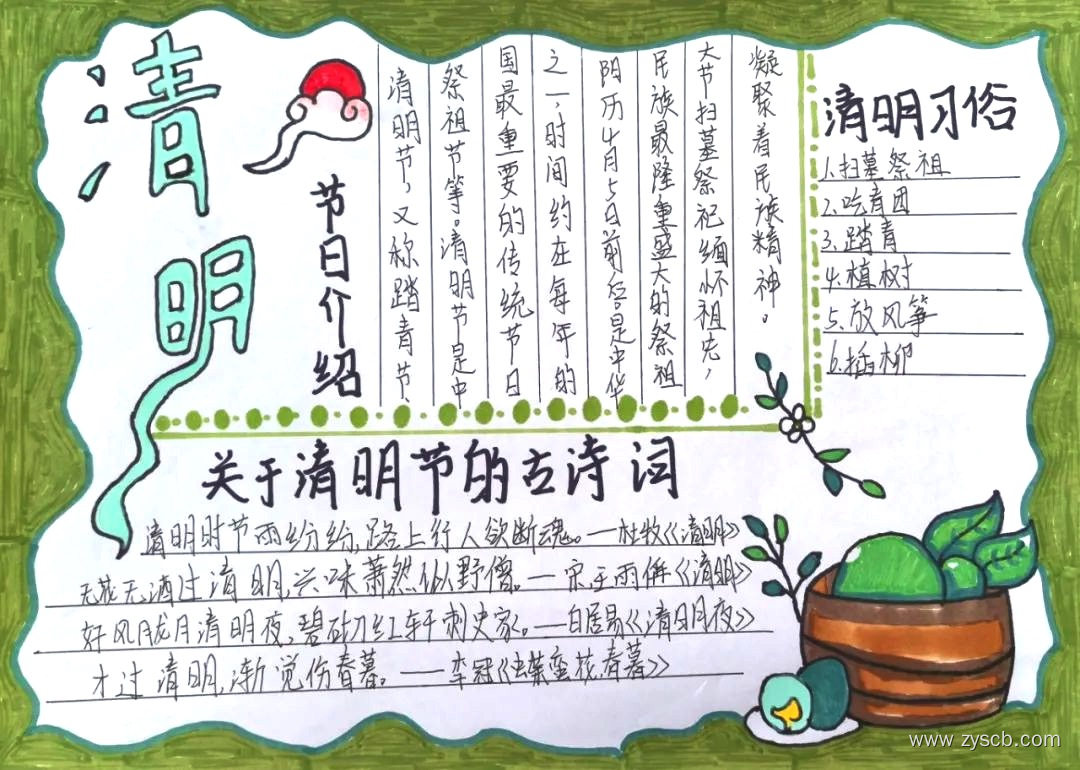 清明
节日介绍
清明节,又称踏青节、
祭祖节等。清明节是中
国最重要的传统节日
之一,时间约在每年的
阳历4月5日前后是中华
民族最隆重盛大的祭祖
大节扫墓祭祀缅怀祖先,
凝聚着民族精神。
清明习俗
1.扫墓祭祖
2.吃青团
3.踏青
4.植树
5.放风筝
6.插柳
关于清明节的古诗词
清明时节雨纷纷,路上行人欲断魂。—杜牧《清明》
无花无酒过清明,兴味萧然似野僧。—宋王雨偁《清明》
好风胧月清明夜,碧砌红轩刺史家。——白居易《清明夜》
才过清明,渐觉伤春暮。——李冠《蝶蛮花.春暮》
www.zyscb.com